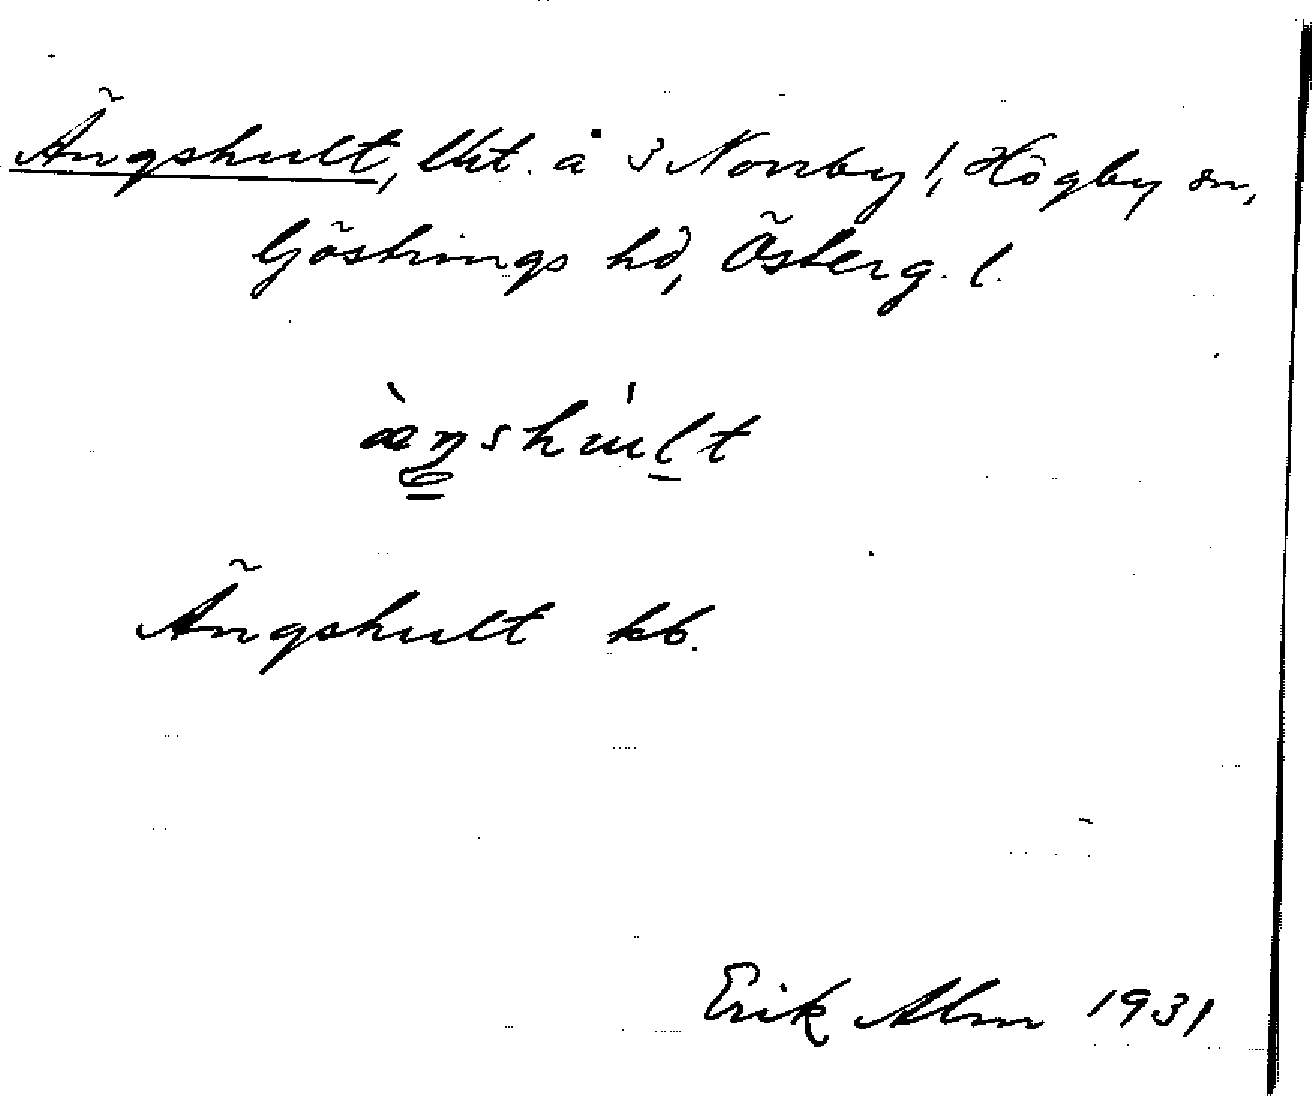 Ängshult, lht. å 3 Norrby !, Högby sn,
Göstrings hd, Österg. l.
æ̀ŋshúlt
Ängshult kb.
Erik Alm 1931